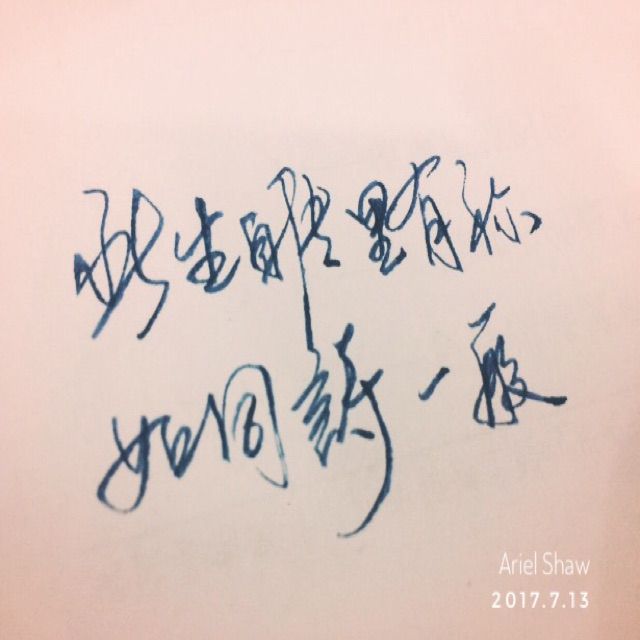 此生眼里有你
如同詩一般
Ariel Shaw
2017.7.13